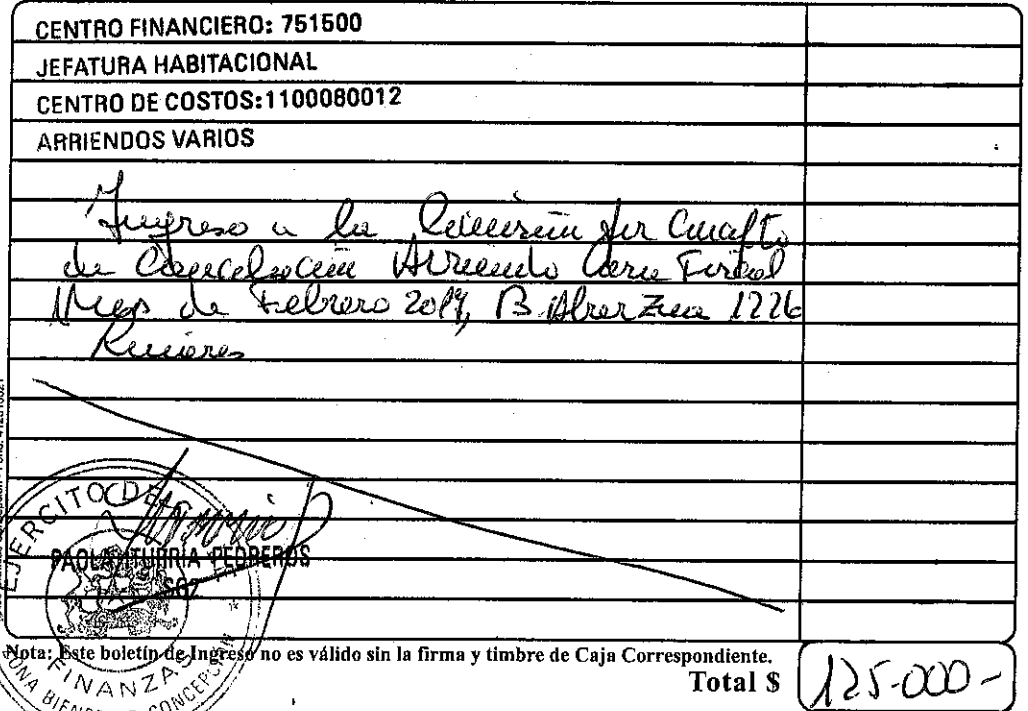 CENTRO FINANCIERO: 751500
JEFATURA HABITACIONAL
CENTRO DE COSTOS:1100080012
ARRIENDOS VARIOS
Ingreso a la Comisión por Cuapto
de Cancelación Arriendo Casa Fiscal
Mes de Febrero 2019, B. 1226
EJERCITO DE
PAOLA ITURRIA PEDREROS
SG2
FINANZAS
ZONA CONCEPCION
Nota: Este boletín de Ingreso no es válido sin la firma y timbre de Caja Correspondiente.
Total $ 125-000-